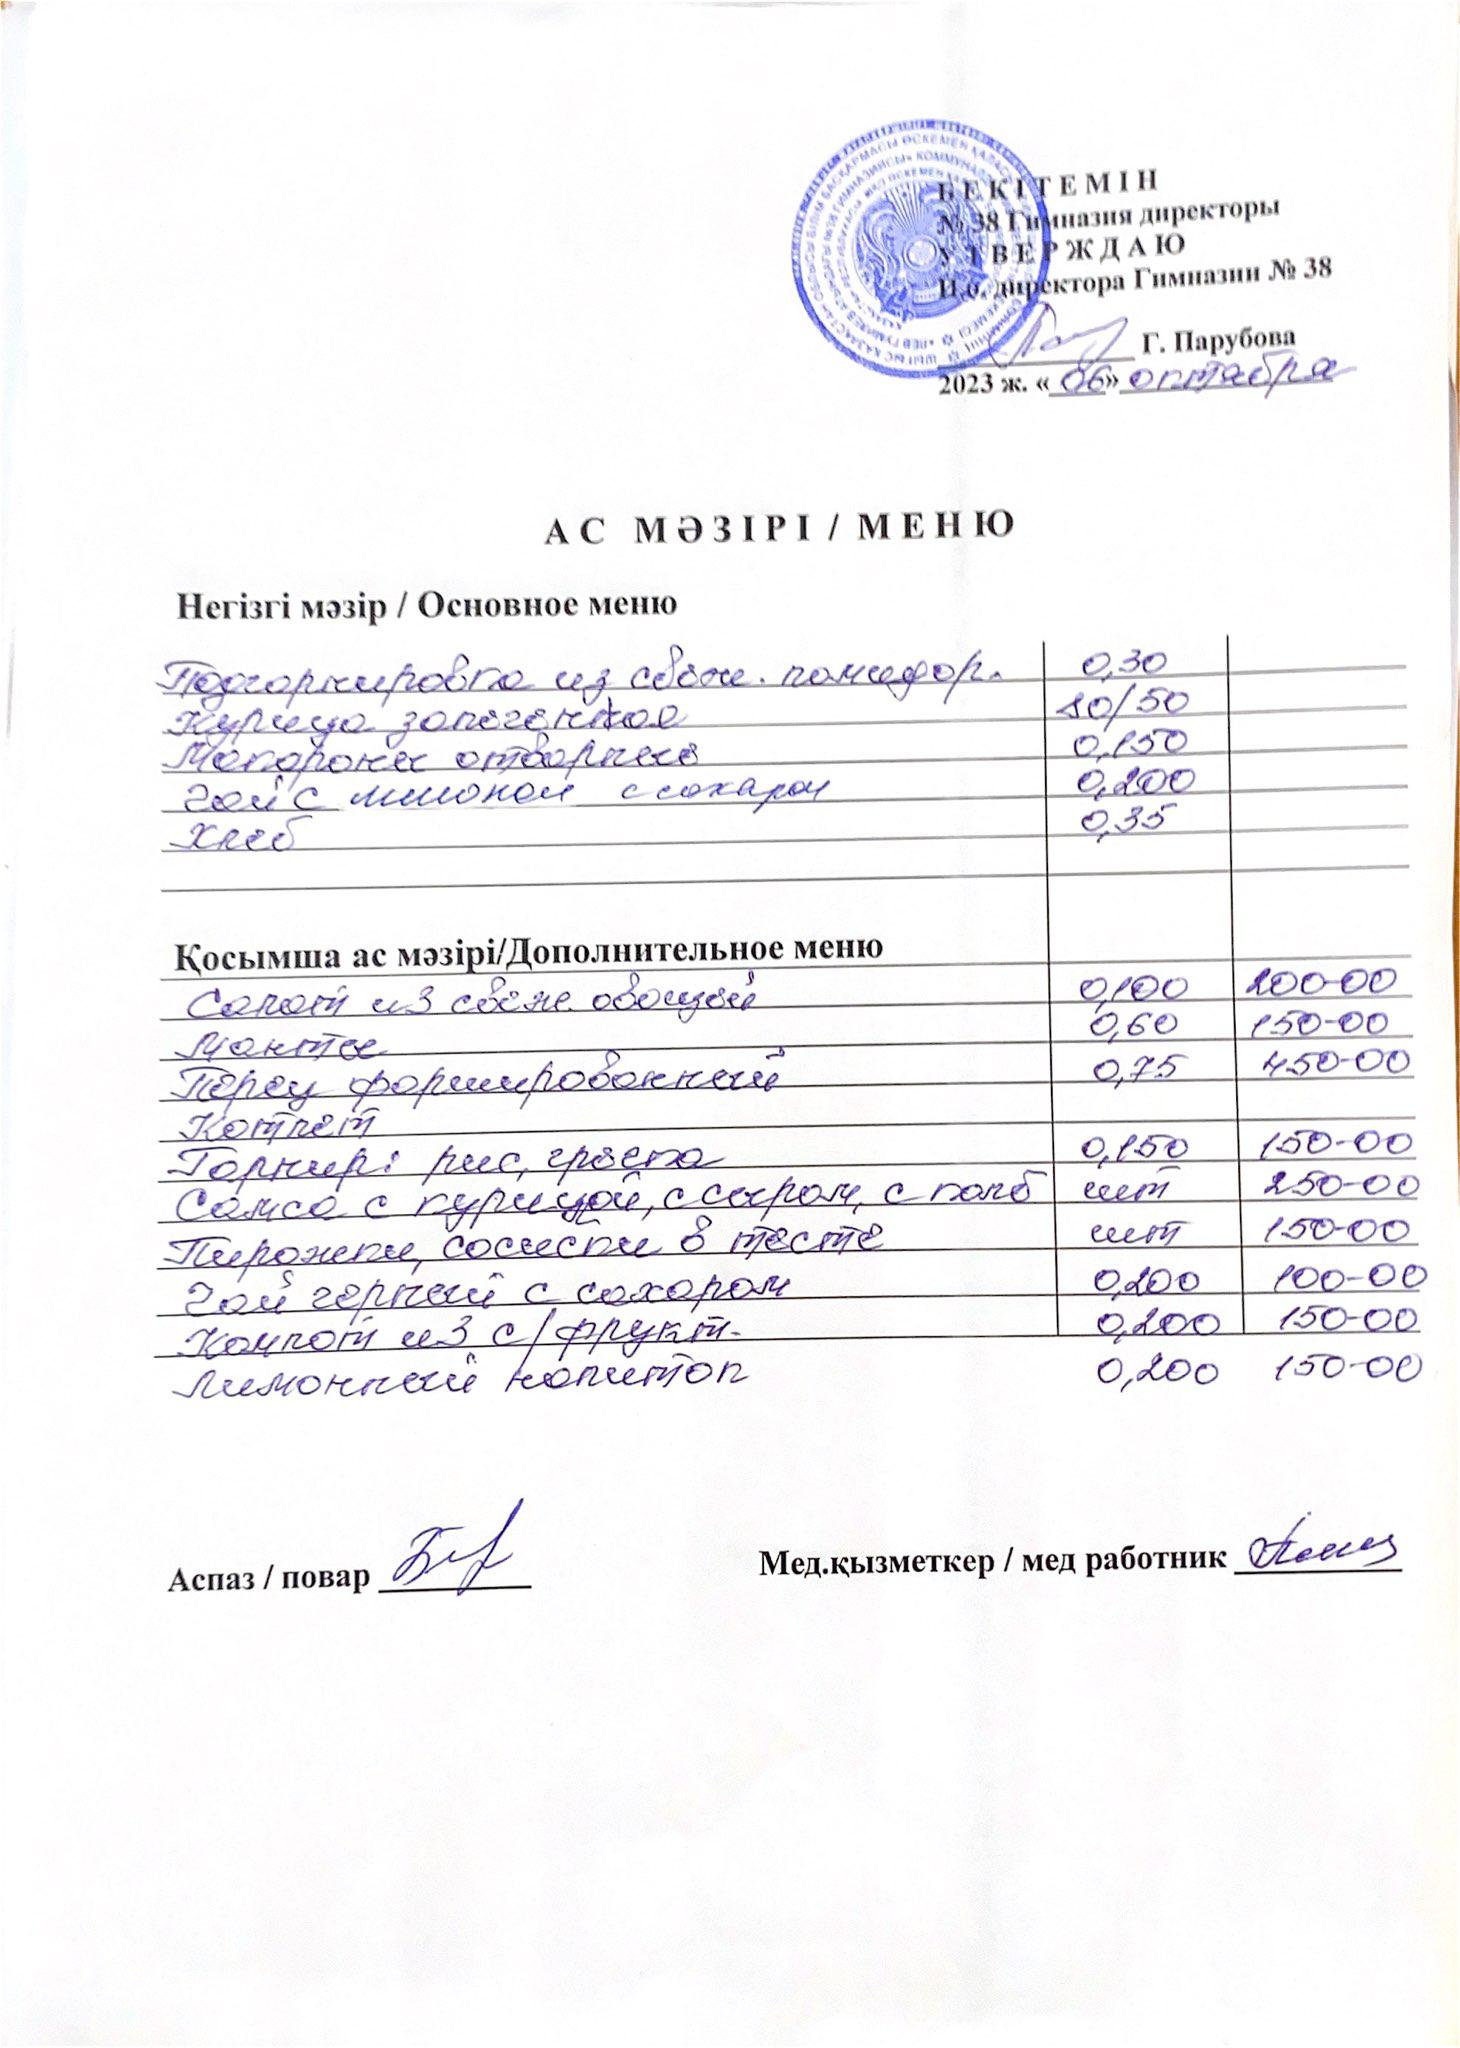 БЕКІТЕМІН
№ 38 Гимназия директоры
УТВЕРЖДАЮ
И.о. директора Гимназии № 38
Г. Парубова
2023 ж. «06» октября
АС МӘЗІРІ / МЕНЮ
Негізгі мәзір / Основное меню
Подгарнировка из свеж. помидор. 0,30
Курица запеченная 80/50
Макароны отварные 0,150
Чай с лимоном с сахаром 0,200
Хлеб 0,35
Қосымша ас мәзірі/Дополнительное меню
Салат из свеж. овощей 0,100 200-00
Манты 0,60 150-00
Перец фаршированный 0,75 450-00
Котлет
Гарнир: рис, греча 0,150 150-00
Самса с курицей, с сыром, с колб шт 250-00
Пирожки, сосиски в тесте шт 150-00
Чай черный с сахаром 0,200 100-00
Компот из с/фрукт. 0,200 150-00
Лимонный напиток 0,200 150-00
Аспаз / повар Мед.қызметкер / мед работник